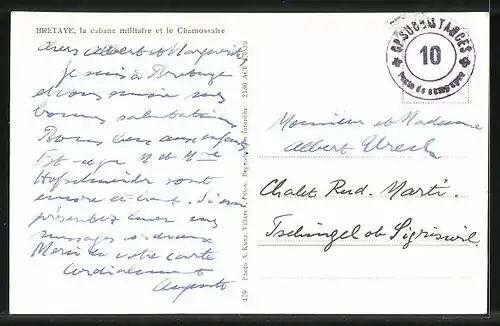 BRETAYE, la cabane militaire et le Chamossaire
Chers Albert et Marguerite
Je suis à Bretaye
et vous envoie mes
bonnes salutations
Bons aux enfants
et M et Mme
Hofschneider sont
encore Si oui
présentez leur mes
messages
Merci de votre carte
Cordialement
479 Photo A. Kunz, Villars s. Ollon. Reproduction interdite 2130 ACF
GP SUBSISTANCES
10
Poste de campagne
Monsieur et Madame
Albert
Chalet Rud. Marti
Tschingel ob Sigriswil